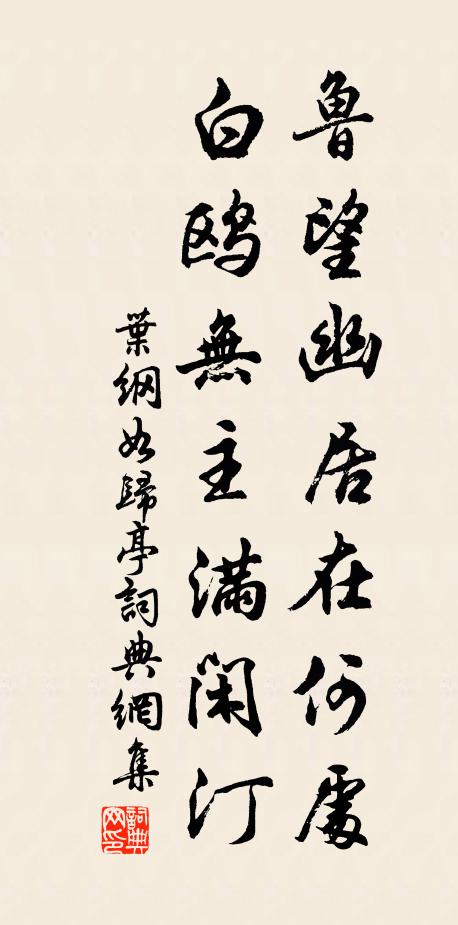 魯望幽居在何處
白鷗無主滿閑汀
葉綱如歸亭詞典網集
詞典網印